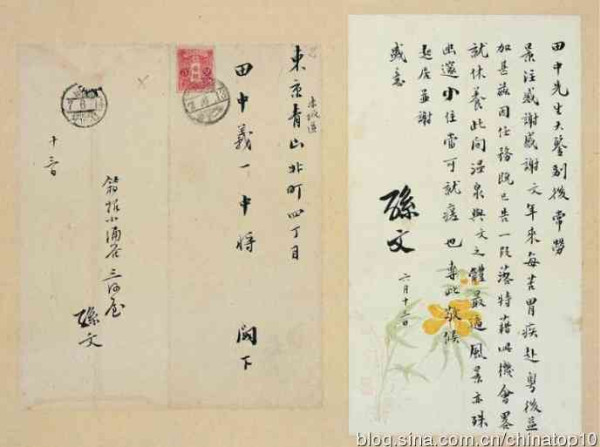 田中先生大鑒別後常勞
景注感謝感謝文年來每苦胃疾赴粵後益
加甚茲因任務既已告一段落特藉此機會畧
就休養此间溫泉與文之體最適風景亦殊
幽邃小住當可就痊也專此敬候
起居並謝
盛意
孫文
六月十三日
赤坂區
東京青山北町四丁目
田中義一中將 閣下
箱根小涌谷三河屋
孫文
十三日
blog.sina.com.cn/chinatop10